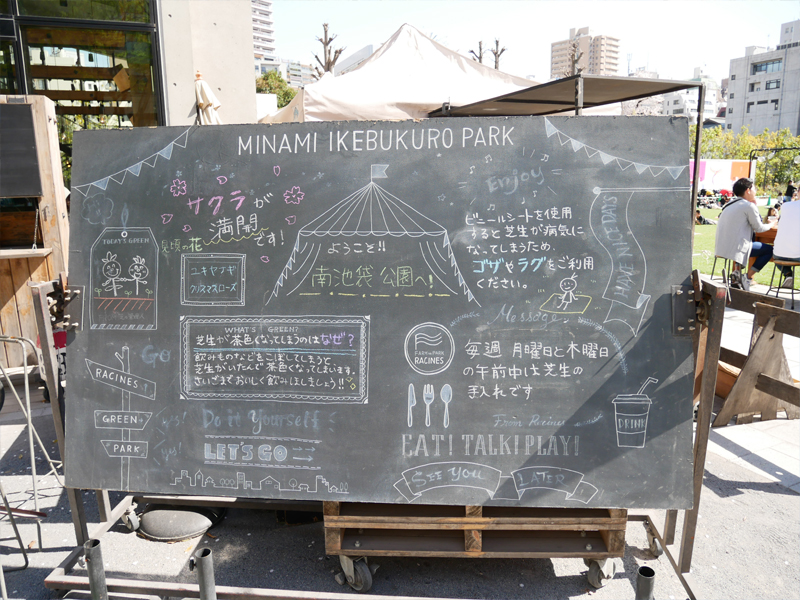 MINAMI IKEBUKURO PARK
サクラが
満開
です!
見頃の花
ユキヤナギ
クリスマスローズ
TODAY'S GREEN
ようこそ!!
南池袋公園へ!
Enjoy
ビニールシートを使用
すると芝生が病気に
なってしまうため、
ゴザやラグをご利用
ください。
HAVE NICE DAYS
WHAT'S GREEN?
芝生が茶色くなってしまうのはなぜ?
飲みものなどをこぼしてしまうと
芝生がいたんで茶色くなってしまいます。
さいごまでおいしく飲みほしましょう!!
FARM to PARK
RACINES
Message
毎週 月曜日と木曜日
の午前中は芝生の
手入れです
From Racines
Go
RACINES
GREEN
PARK
Yes!
Yes!
Do it Yourself
LET'S GO
EAT! TALK! PLAY!
SEE YOU LATER
DRINK